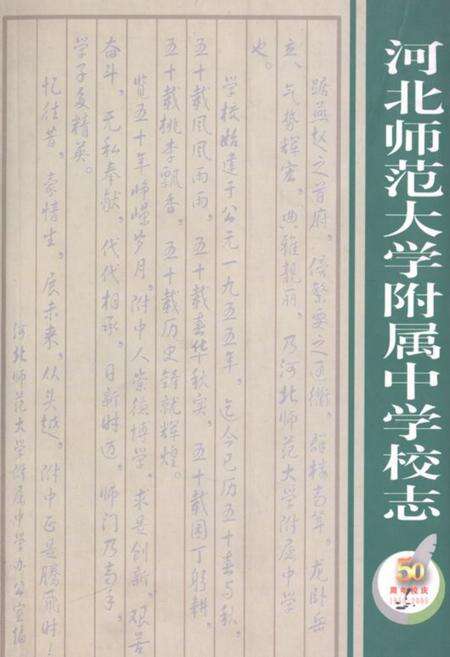 河北师范大学附属中学校志
踞燕赵之首府,倚繁要之通衢。群楼高耸,龙卧岳
立,气势辉宏,典雅靓丽,乃河北师范大学附属中学
也。
学校始建于公元一九五五年,迄今已历五十春与秋。
五十载风风雨雨,五十载春华秋实,五十载园丁躬耕,
五十载桃李飘香,五十载历史铸就辉煌。
览五十年峥嵘岁月,附中人崇德博学,求是创新,艰苦
奋斗,无私奉献,代代相承,日新时迈,师门乃高手,
学子多精英。
忆往昔,豪情生,展未来,从头越。附中正是腾飞时!
河北师范大学附属中学办公室编
50
周年校庆
1955-2005